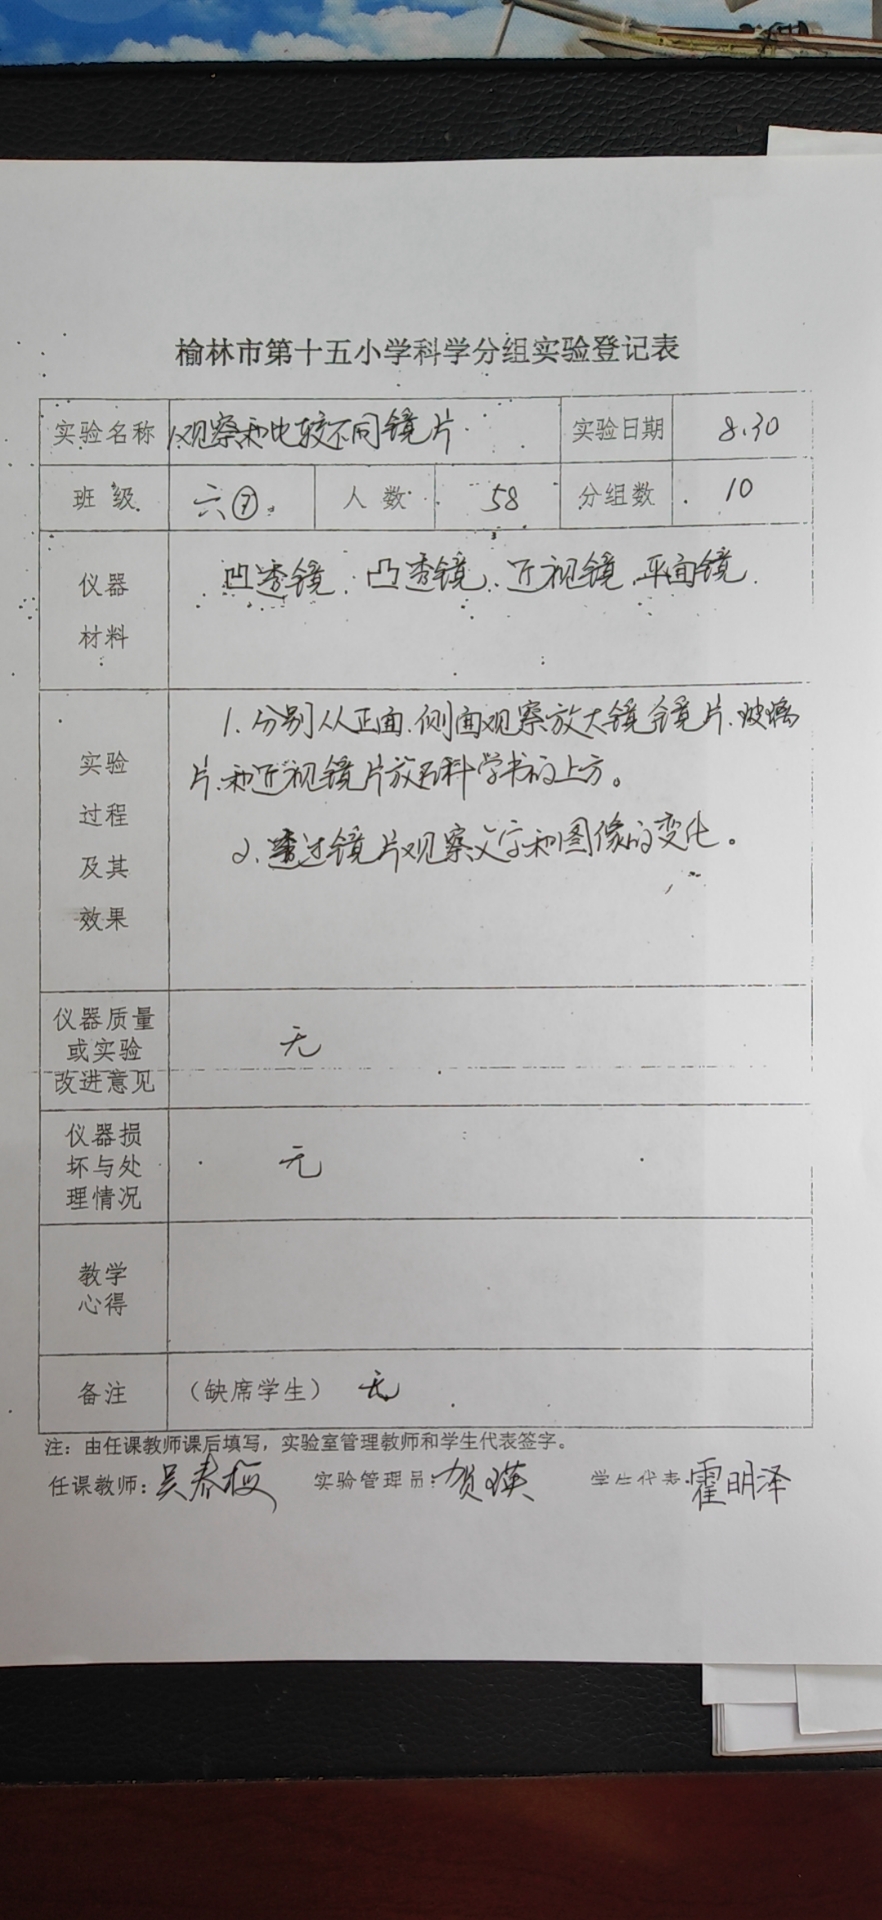 榆林市第十五小学科学分组实验登记表
实验名称 1.观察和比较不同镜片 实验日期 8.30
班级 六⑦. 人数 58 分组数 10
仪器
材料
凹透镜、凸透镜、近视镜、平面镜.
实验
过程
及其
效果
1. 分别从正面、侧面观察放大镜镜片、玻璃
片、和近视镜片放科学书的上方。
2. 透过镜片观察文字和图像的变化。
仪器质量
或实验
改进意见
无
仪器损
坏与处
理情况
无
教学
心得
备注 （缺席学生） 无
注：由任课教师课后填写，实验室管理教师和学生代表签字。
任课教师: 吴春梅 实验管理员: 贺瑛 学生代表: 霍明泽